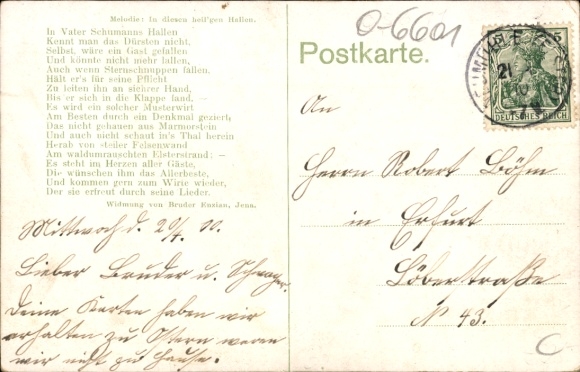 Melodie: In diesen heil'gen Hallen.
In Vater Schumanns Hallen
Kennt man das Dürsten nicht,
Selbst, wäre ein Gast gefallen
Und könnte nicht mehr lallen,
Auch wenn Sternschnuppen fallen.
Hält er's für seine Pflicht
Zu leiten ihn an sichrer Hand,
Bis er sich in die Klappe fand. —
Es wird ein solcher Musterwirt
Am Besten durch ein Denkmal geziert,
Das nicht gehauen aus Marmorstein
Und auch nicht schaut in's Thal herein
Herab von steiler Felsenwand
Am waldumrauschten Elsterstrand; —
Es steht im Herzen aller Gäste,
Die wünschen ihm das Allerbeste,
Und kommen gern zum Wirte wieder,
Der sie erfreut durch seine Lieder.
Widmung von Bruder Enzian, Jena.
Mittwoch d. 20/4.
Lieber Bruder u. Schwager.
Deine Karten haben wir
erhalten zu Ostern waren
wir nicht zu Hause.
0-6601
Postkarte.
5 5
DEUTSCHES REICH
21
An
Herrn Robert Böhm
in Erfurt
Löberstraße
No 43.